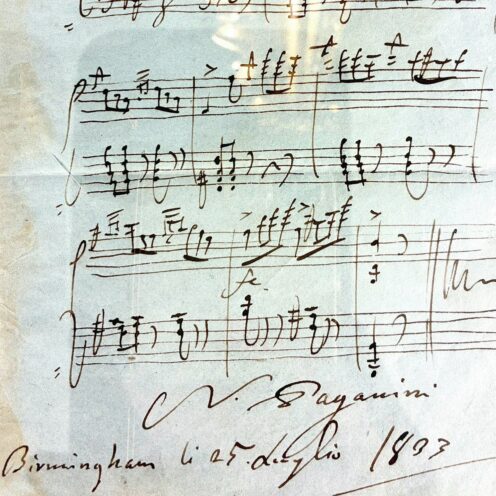 N. Paganini
Birmingham li 25. Luglio 1833